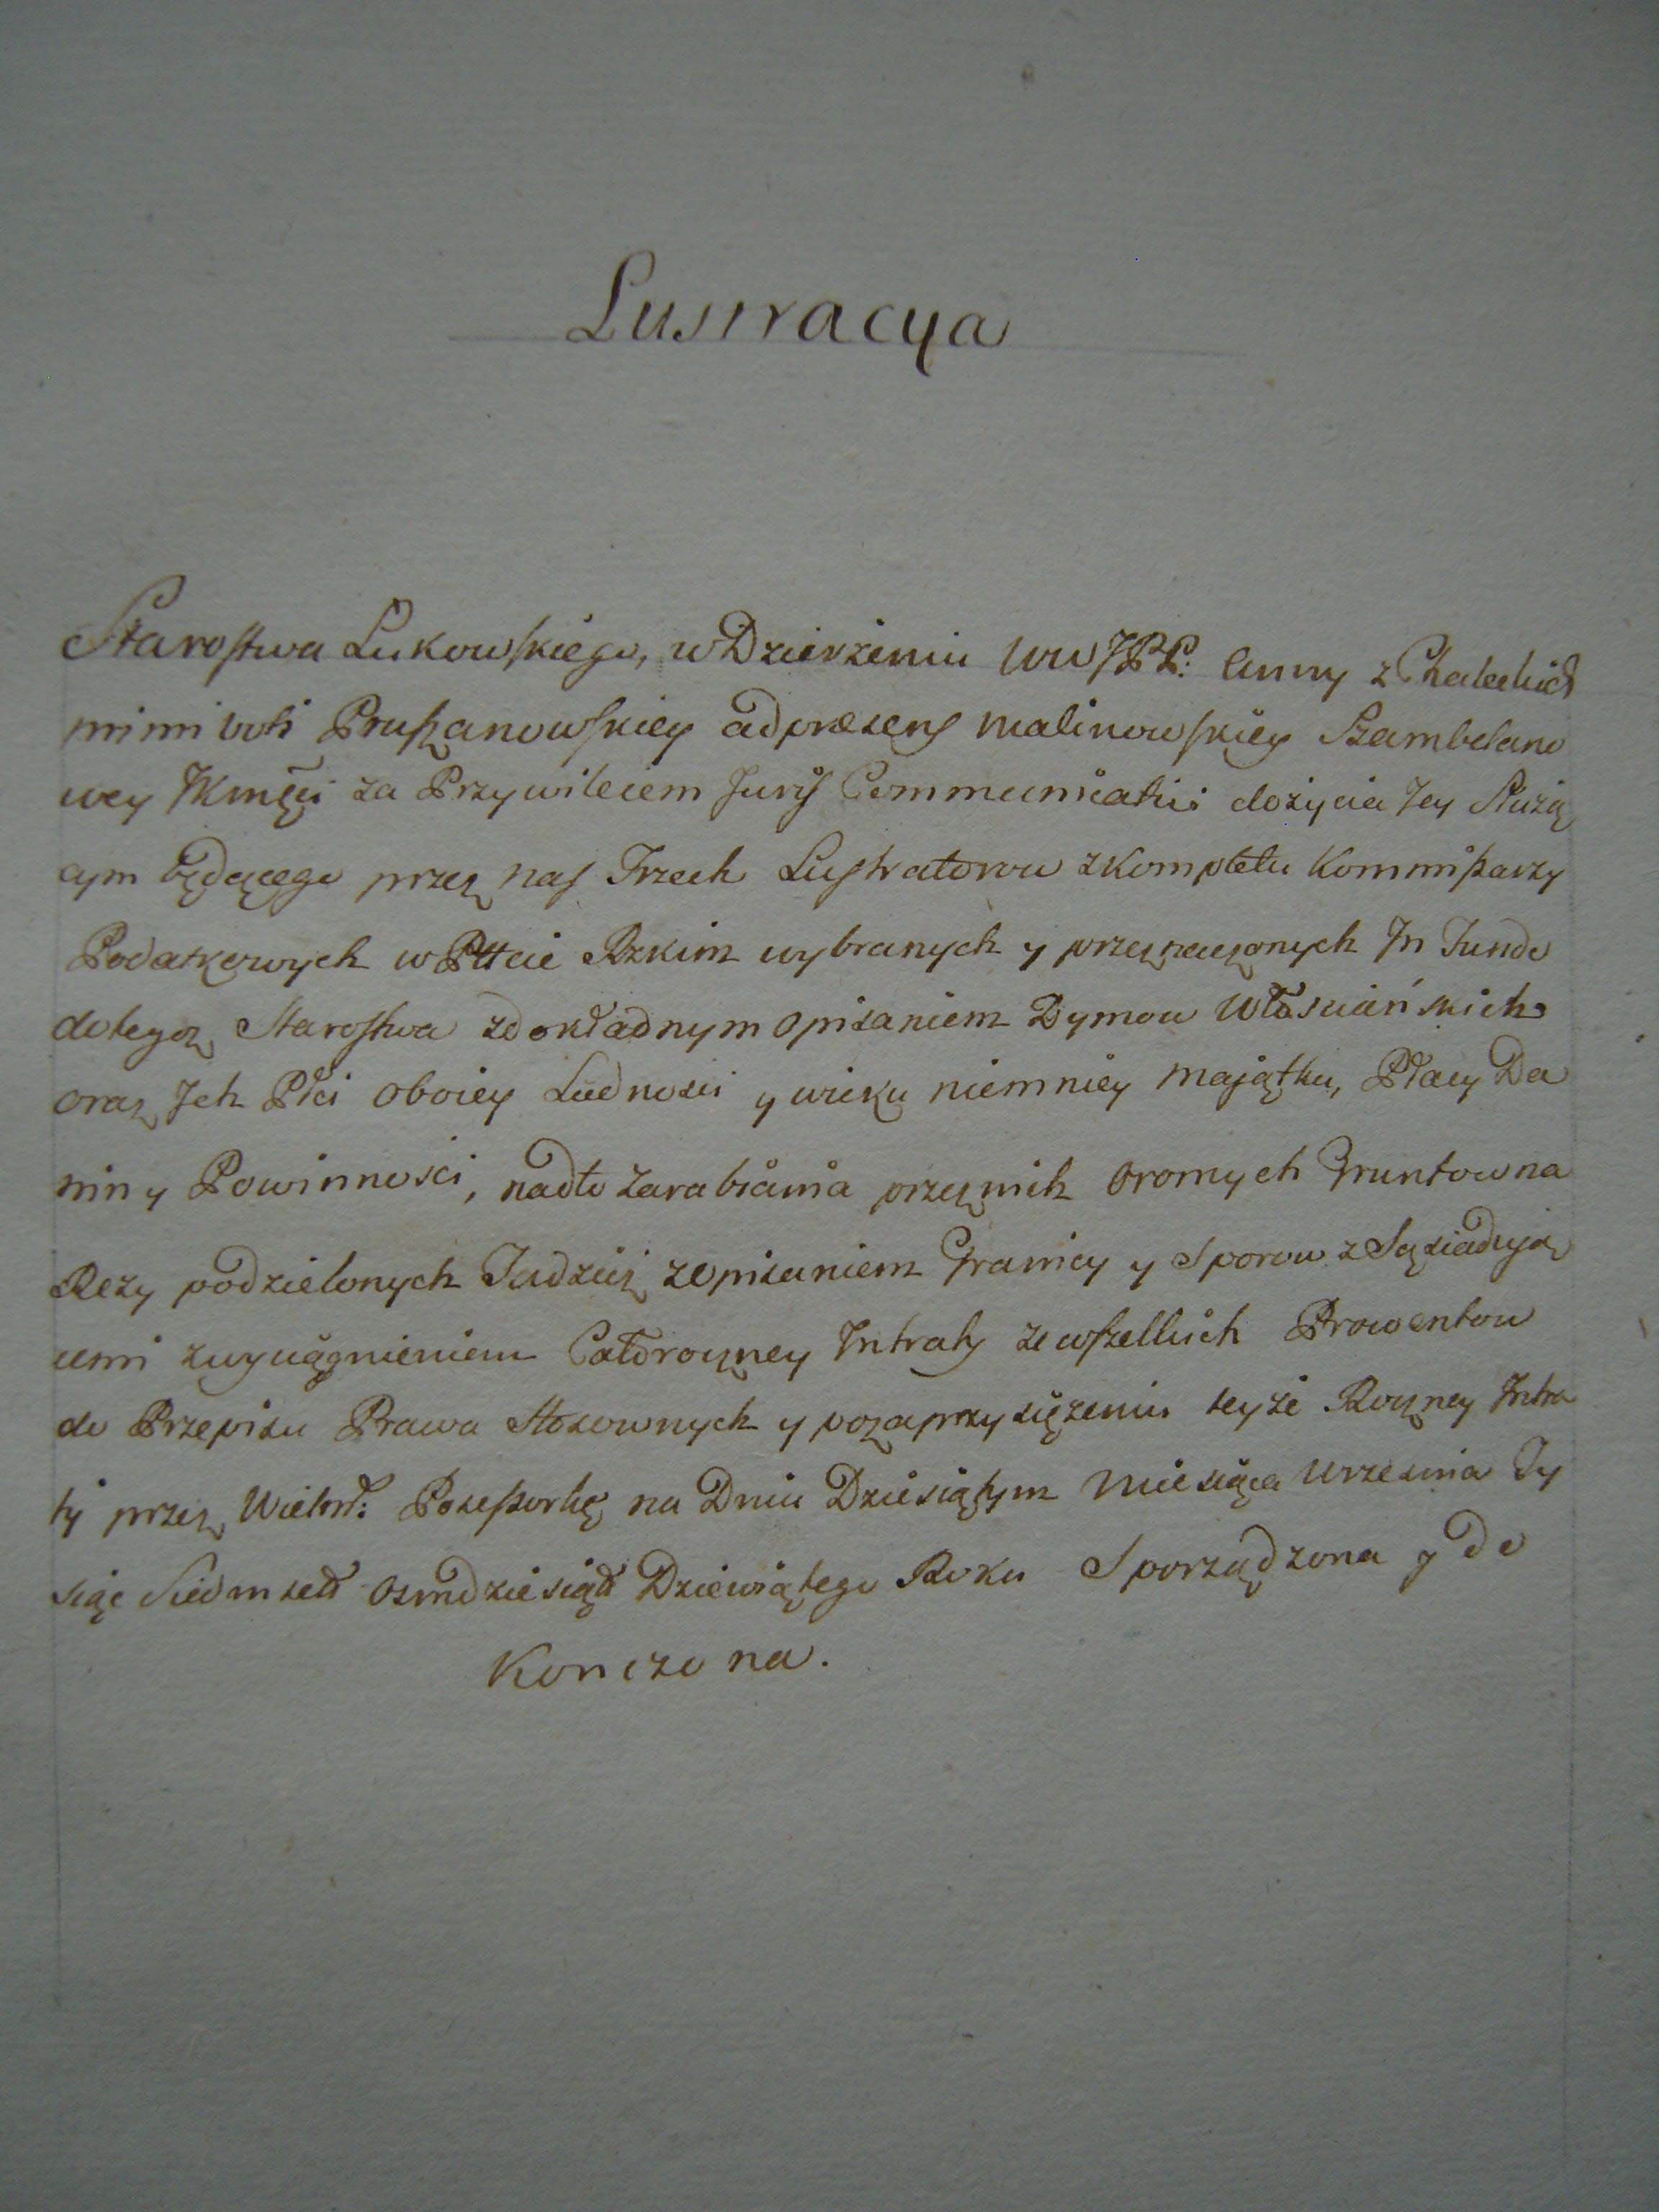 Lustracya
Starostwa Lukowskiego, w Dzierżeniu WW JPP: Anny z Chaleckich
mi mi voti Pruszanowskiey ad præsens Malinowskiey Szambelano
wey JKmści za Przywileiem Juris Communicativi dożycia Jey Służą
cym będącego przez nas Trzech Lustratorow z Kompletu Kommissarzy
Podatkowych w Pttcie Rzkim wybranych y przeznaczonych In Fundo
do tegoż Starostwa z dokładnym opisaniem Dymow Włościańskich
oraz Jch Płci oboiey Ludnosci y wieku niemniey majątku, Płacy Da
nin y Powinnosci, nadto zarabiania przez nich oromych Gruntow na
Rezy podzielonych Tudzież z opisaniem Granicy y Sporow z Sąsiadują
cemi z wyciągnieniem Całoroczney Intraty ze wszelkich Prowentow
do Przepisu Prawa Stosownych y po zaprzysiężeniu teyże Roczney Intra
ty przez Wielm: Possessorkę na Dniu Dziesiątym Miesiąca Września Ty
siąc Siedmset Osmdziesiąt Dziewiątego Roku Sporządzona y Do
Konczona.